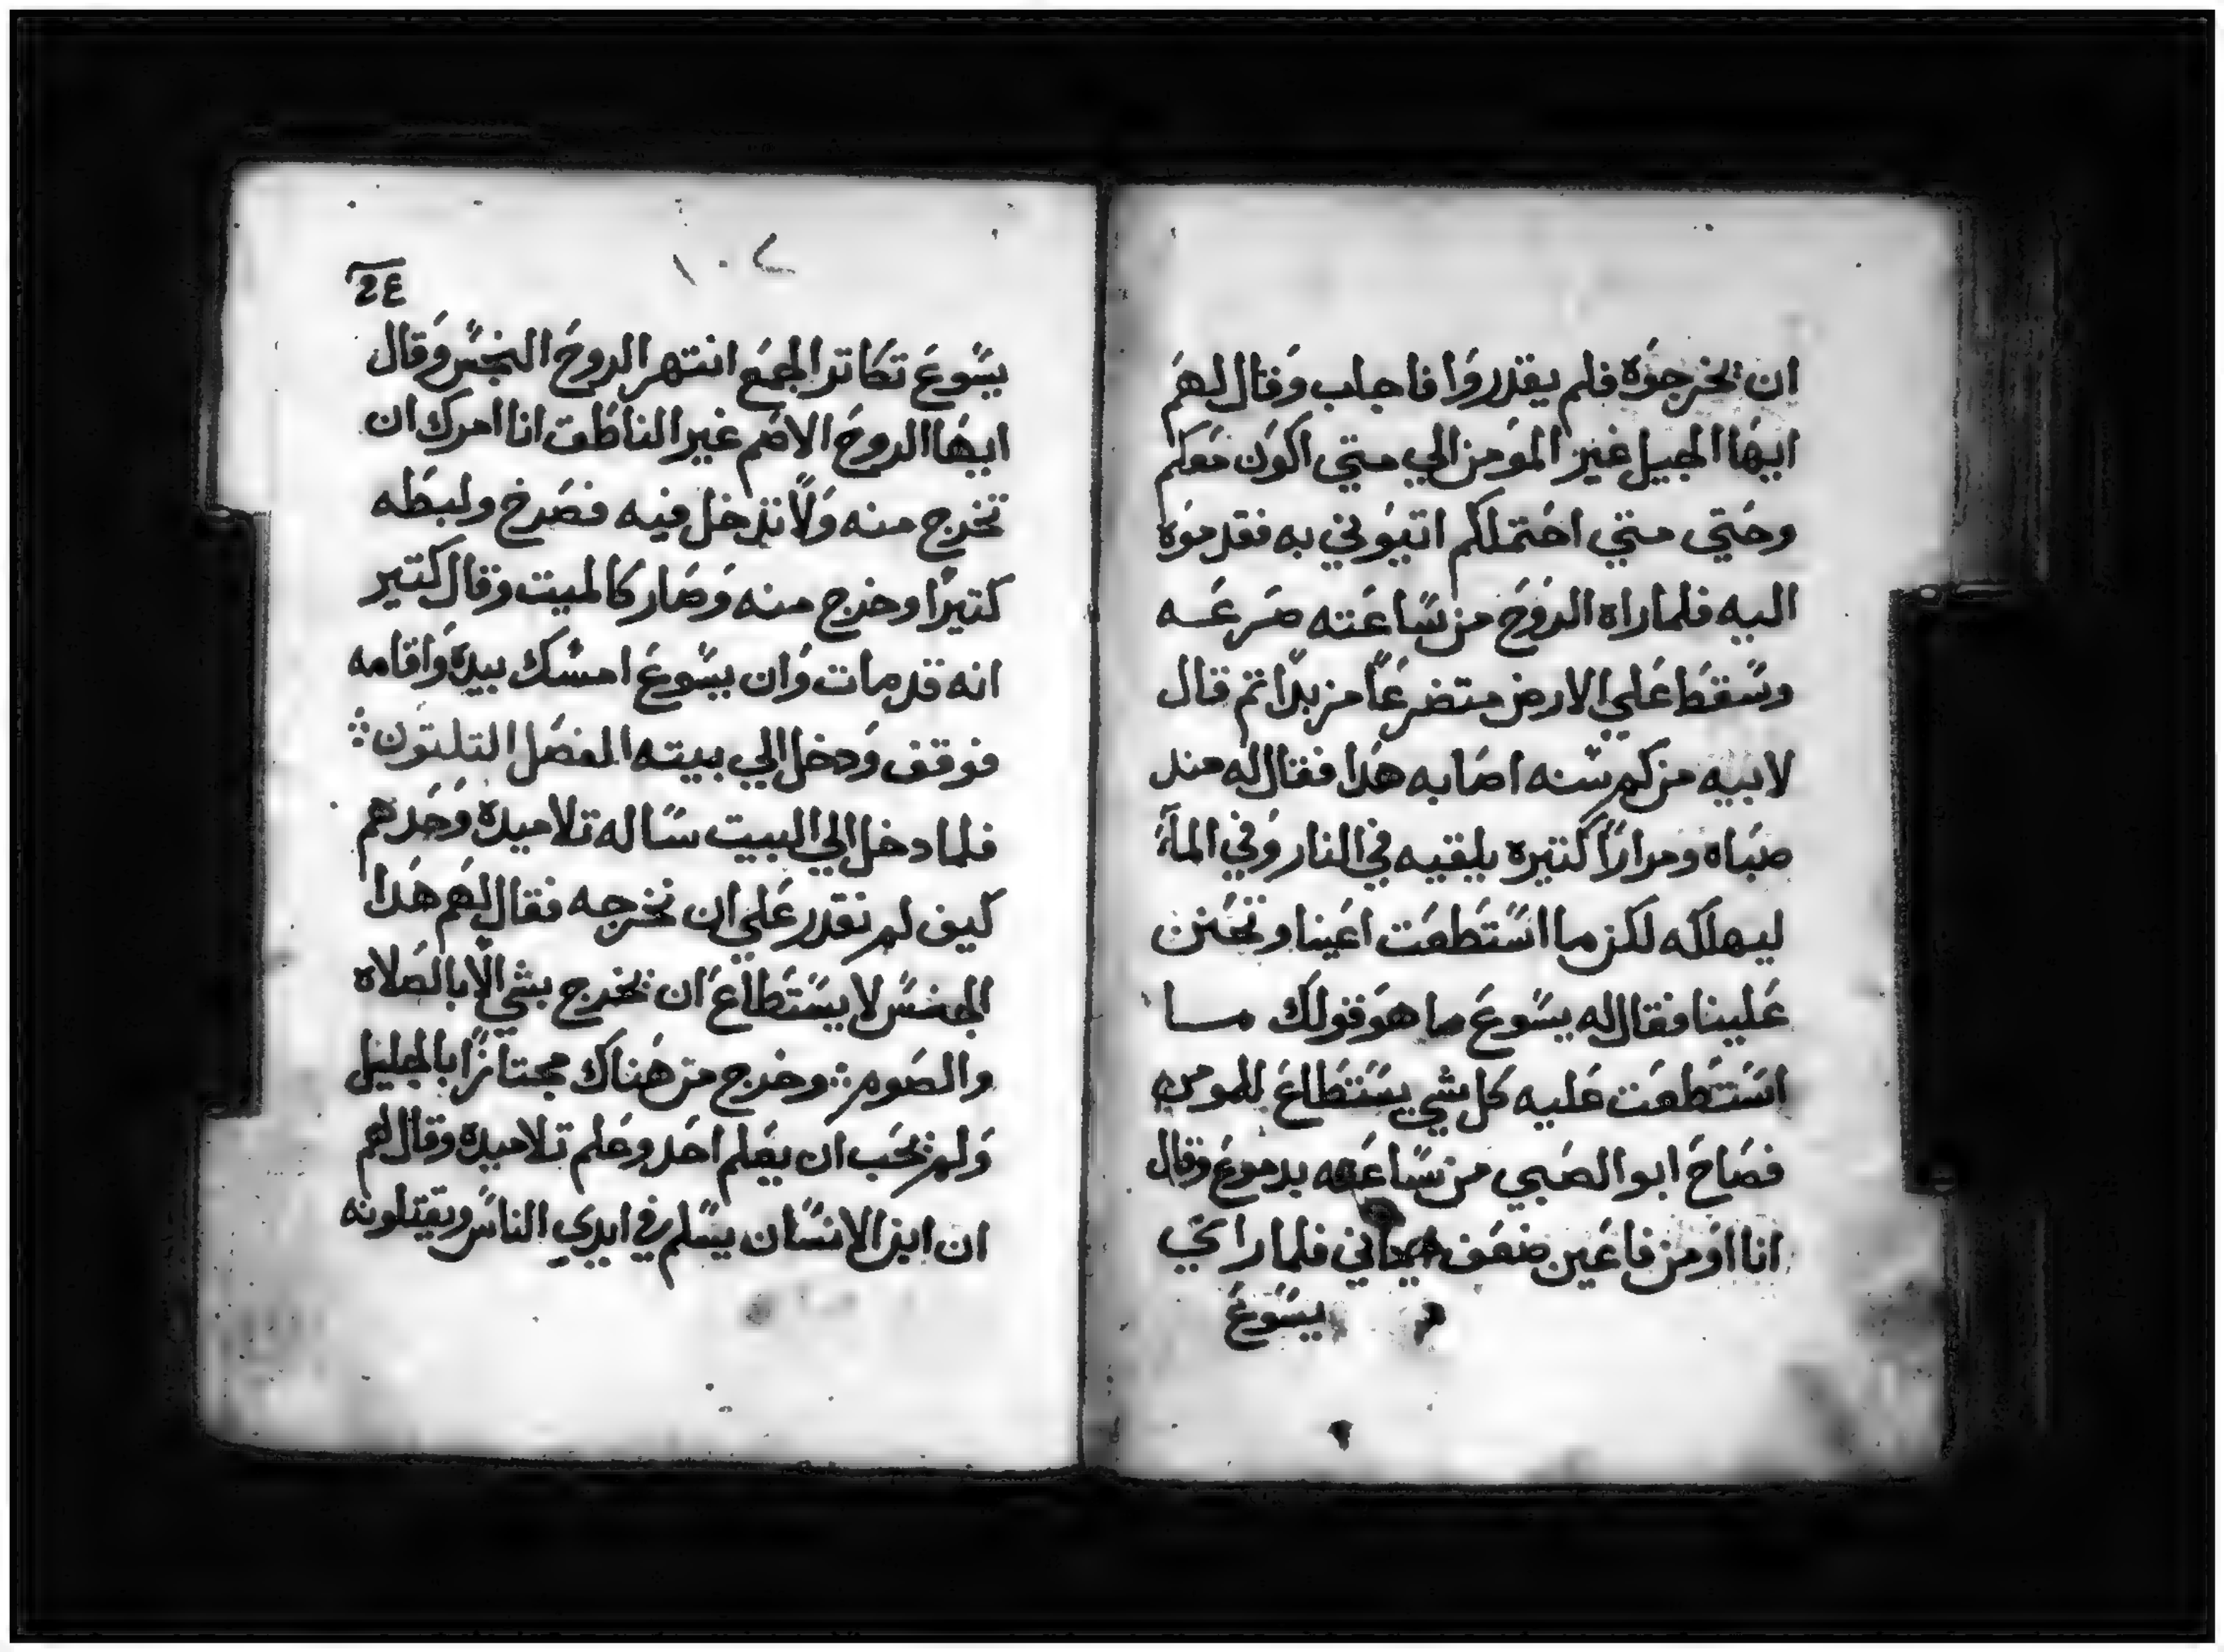 ان يخرجوه فلم يقدروا فاجاب وقال لهم
ايها الجيل غير المومن الي متي اكون معكم
وحتي متي احتملكم اتيوني به فقدموه
اليه فلما راه الروح من ساعته صرعه
وسقط علي الارض متضرعاً مزبداً تم قال
لابيه من كم سنه اصابه هدا فقال له مند
صباه ومراراً كتيره يلقيه في النار وفي المآء
ليهلكه لكن ما استطعت اعينا وتحنن
علينا فقال له يسوع ما هو قولك ما
استطعت عليه كل شي يستطاع للمومن
فصاح ابو الصبي من ساعته بدموع وقال
انا اومن فاعين ضعف ايماني فلما راي
يسوع
١٠٢
يسوع تكاتر الجمع انتهر الروح النجس وقال
ايها الروح الاصم غير الناطق انا امرك ان
تخرج منه ولا تدخل فيه فصرخ ولبطه
كتيرًا وخرج منه وصار كالميت وقال كتير
انه قد مات وان يسوع امسك بيده واقامه
فوقف ودخل الي بيته الفصل التلتون
فلما دخل الي البيت ساله تلاميده وحدهم
كيف لم نقدر علي ان نخرجه فقال لهم هدا
الجنس لا يستطاع ان يخرج بشي الا بالصلاه
والصوم وخرج من هناك مجتازًا بالجليل
ولم يحب ان يعلم احد وعلم تلاميده وقال لهم
ان ابن الانسان يسلم في ايدي الناس ويقتلونه